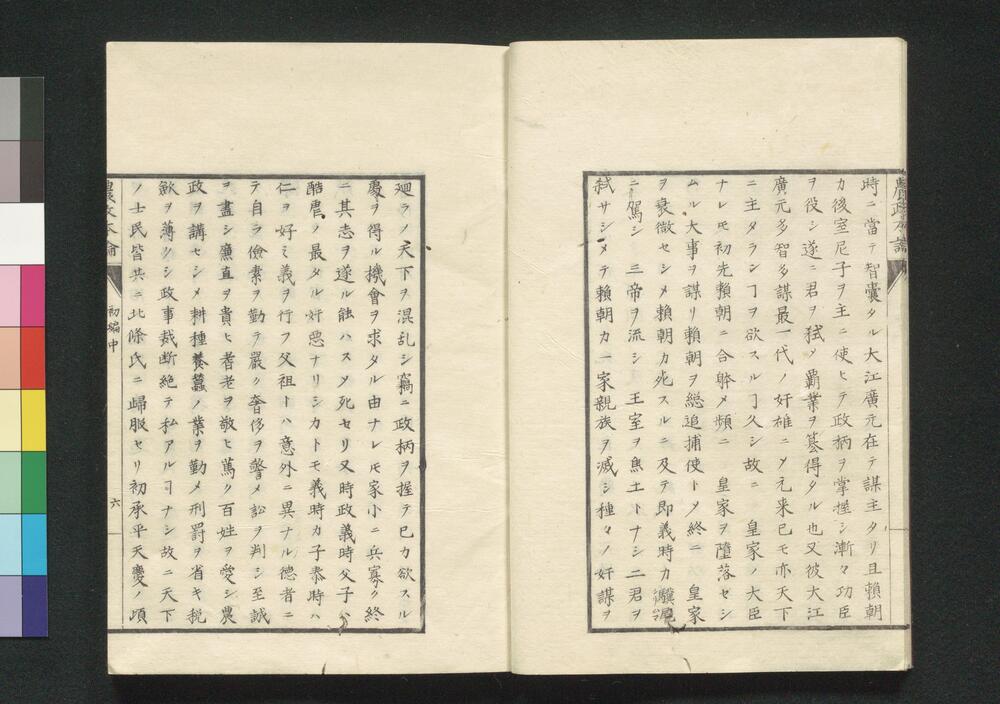 農政本論
時ニ當テ智囊タル大江廣元在テ謀主タリ且賴朝
カ後室尼子ヲ主ニ使ヒテ政柄ヲ掌握シ漸々功臣
ヲ役シ遂ニ君ヲ弑メ覇業ヲ簒得タル也又彼大江
廣元多智多謀最一代ノ奸雄ニメ元来已モ亦天下
ニ主タランヿヲ欲スルヿ久シ故ニ 皇家ノ大臣
ナレモ初先賴朝ニ合躰メ頻ニ 皇家ヲ墮落セシ
ムル大事ヲ謀リ賴朝ヲ総追捕使トメ終ニ 皇家
ヲ衰微セシメ賴朝カ死スルニ及テ即義時カ驥尾
ニ駕シ 三帝ヲ流シ 王室ヲ焦土トナシ二君ヲ
弑サシメテ賴朝カ一家親族ヲ滅シ種々ノ奸謀ヲ
廻ラノ天下ヲ混乱シ竊ニ政柄ヲ握テ已カ欲スル
慶ヲ得ル機會ヲ求タル由ナレモ家小ニ兵寡ク終
ニ其志ヲ遂ル能ハスメ死セリ又時政義時父子ハ
酷虐ノ最タル奸惡ナリシカトモ義時カ子泰時ハ
仁ヲ好ミ義ヲ行フ父祖トハ意外ニ異ナル德者ニ
テ自ラ儉素ヲ勤テ嚴ク奢侈ヲ警メ訟ヲ判シ至誠
ヲ盡シ廉直ヲ貴ヒ耆老ヲ敬ヒ萬ク百姓ヲ愛シ農
政ヲ講セシメ耕種養蠶ノ業ヲ勤メ刑罰ヲ省キ税
歛ヲ薄クシ政事裁断絶テ私アルヿナシ故ニ天下
ノ士民皆共ニ北條氏ニ歸服セリ初承平天慶ノ頃
農政本論 初編中 六